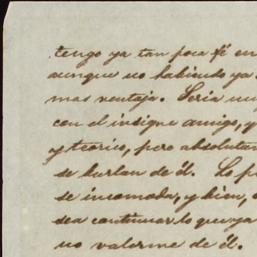 tengo ya tan poca fé en
aunque no habiendo ya
mas ventaja. Seria
con el insigne amigo, y
y teorico, pero absolutam
se burlan de él. Lo p
se incomoda, y bien,
sea continuar lo que ya
no valerme de él.